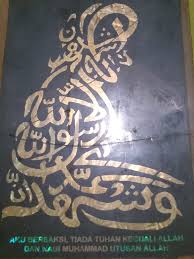 اشهد ان لا اله الا الله
واشهد ان محمدا رسول الله
AKU BERSAKSI, TIADA TUHAN KECUALI ALLAH
DAN NABI MUHAMMAD UTUSAN ALLAH